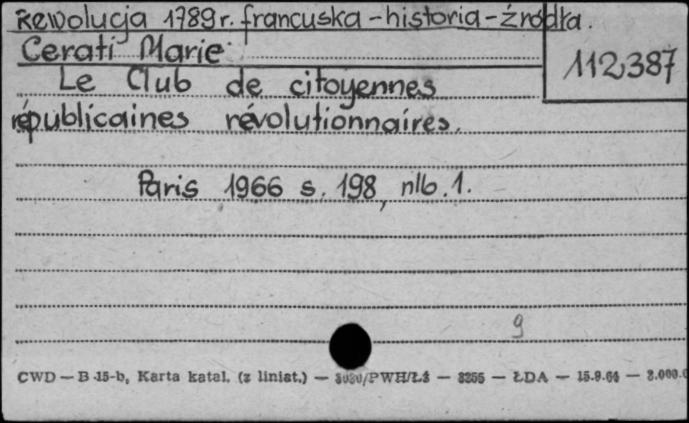 Rewolucja 1789r. francuska - historia - źródła.
Cerati Marie
112387
Le Club de citoyennes
républicaines révolutionnaires.
Paris 1966 s. 198, nlb. 1.
9
CWD — B-15-b, Karta katal. (z liniat.) — /PWH/Łź — — ŁDA — 15.9.